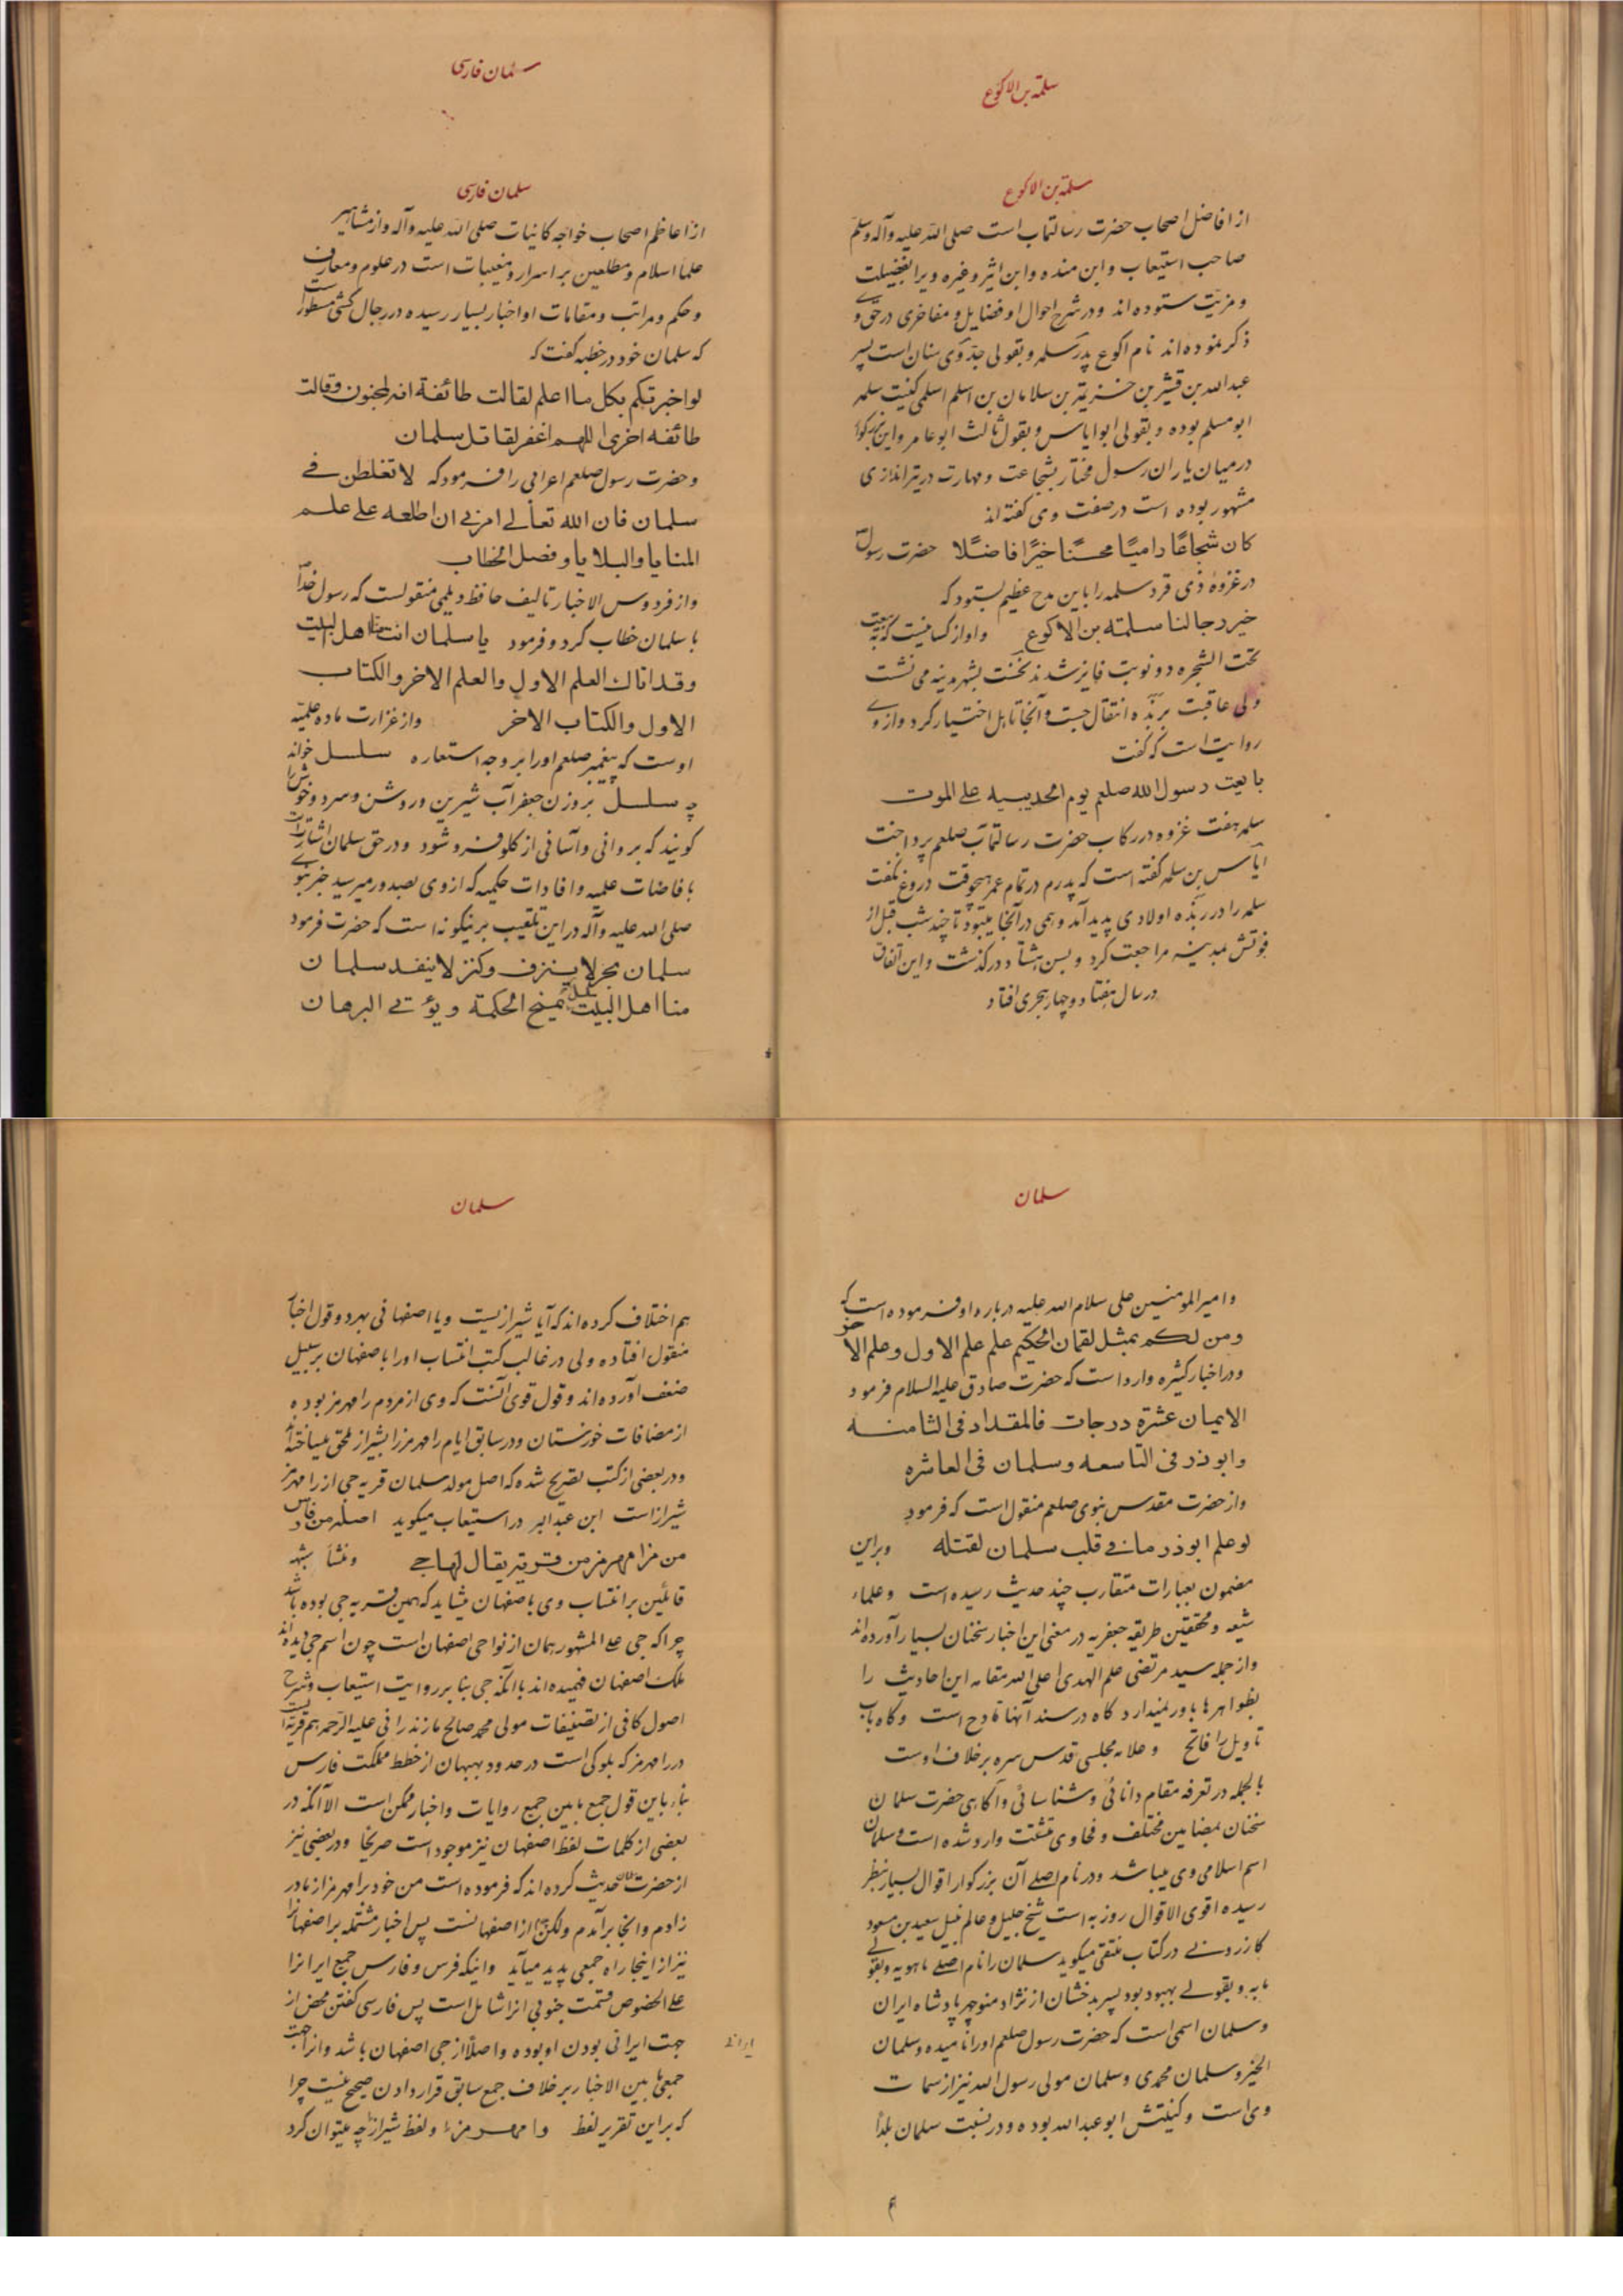 سلمة بن الاکوع
سلمة بن الاکوع
از افاضل اصحاب حضرت رسالتمآب است صلی الله علیه وآله وسلم
صاحب استیعاب و ابن منده و ابن اثیر و غیره ویرا بفضیلت
و مزیت ستوده اند و در شرح احوال او فضایل و مفاخری در حق وے
ذکر نموده اند نام اکوع پدر سلمه و بقولی جد وی سنان است پسر
عبدالله بن قشیر بن خزیمة بن سلامان بن اسلم اسلمی کنیت سلمه
ابو مسلم بوده و بقولی ابو ایاس و بقول ثالث ابو عامر و این بزرکوار
در میان یاران رسول مختار بشجاعت و مهارت در تیراندازی
مشهور بوده است در صفت وی کفته اند
کان شجاعًا رامیًا محسنًا خیرًا فاضلًا حضرت رسولؐ
در غزوهٔ ذی قرد سلمه را باین مدح عظیم بستود که
خیر رجالنا سلمته بن الاکوع و او از کسانیست که به بیعت
تحت الشجره دو نوبت فایز شدند نخست بشهر مدینه می نشست
ولی عاقبت بربذه انتقال جست و آنجا تاهل اختیار کرد و از وے
روایت است که کفت
بایعت رسول الله صلعم یوم الحدیبیه علی الموت
سلمه هفت غزوه در رکاب حضرت رسالتمآب صلعم پرداخت
ایاس بن سلمه کفته است که پدرم در تمام عمر هیچوقت دروغ نکفت
سلمه را در ربذه اولادی پدید آمد و همی در آنجا میبود تا چند شب قبل از
فوتش بمدینه مراجعت کرد و بسن هشتاد درکذشت و این اتفاق
در سال هفتاد و چهار هجری افتاد
سلمان فارسی
سلمان فارسی
از اعاظم اصحاب خواجه کاینات صلی الله علیه وآله و از مشاهیر
علما اسلام و مطلعین بر اسرار و مغیبات است در علوم و معارف
و حکم و مراتب و مقامات او اخبار بسیار رسیده در رجال کشی مسطور است
که سلمان خود در خطبه کفت که
لو اخبرتکم بکل ما اعلم لقالت طائفة انه لمجنون وقالت
طائفه اخری اللهم اغفر لقاتل سلمان
و حضرت رسول صلعم اعرابی را فرمود که لا تغلطن فے
سلمان فان الله تعالے امرنے ان اطلعه علے علم
المنایا والبلایا و فصل الخطاب
و از فردوس الاخبار تالیف حافظ دیلمی منقولست که رسول خداؐ
با سلمان خطاب کرد و فرمود یا سلمان انت منا اهل البیت
وقد اتاك العلم الاول والعلم الاخر والکتاب
الاول والکتاب الاخر و از غزارت ماده علمیه
اوست که پیغمبر صلعم او را بر وجه استعاره سلسل خواند
چه سلسل بر وزن جعفر آب شیرین و روشن و سرد و خوش را
کویند که بروانی و آسانی از کلو فرو شود و در حق سلمان اشارتست
بافاضات علمیه و افادات حکمیه که از وی بصدور میرسید خبر نبوے
صلی الله علیه وآله در این تلقیب برینکونه است که حضرت فرمود
سلمان بحر لا ینزف وکنز لا ینفد سلمان
منا اهل البیت سلسل یمنح الحکمة ویؤتے البرهان
سلمان
و امیرالمومنین علی سلام الله علیه درباره او فرموده است که
ومن لکم بمثل لقمان الحکیم علم علم الاول وعلم الاخر
و در اخبار کثیره وارد است که حضرت صادق علیه السلام فرمود
الایمان عشرة درجات فالمقداد فی الثامنه
وابوذر فی التاسعه وسلمان فی العاشره
و از حضرت مقدس نبوی صلعم منقول است که فرمود
لو علم ابوذر ما فے قلب سلمان لقتله و براین
مضمون بعبارات متقارب چند حدیث رسیده است و علماء
شیعه و محققین طریقه جعفریه در معنی این اخبار سخنان بسیار آورده اند
و از جمله سید مرتضی علم الهدی اعلی الله مقامه این احادیث را
بظواهرها باور نمیدارد کاه در سند آنها قادح است و کاه باب
تاویل را فاتح و علامه مجلسی قدس سره بر خلاف اوست
بالجمله در تعرفه مقام دانائی و شناسائی و آکاهی حضرت سلمان
سخنان بمضامین مختلف و فحاوی متشتت وارد شده است و سلمان
اسم اسلامی وی میباشد و در نام اصلے آن بزرکوار اقوال بسیار بنظر
رسیده اقوی الاقوال روزبه است شیخ جلیل و عالم نبیل سعید بن مسعود
کازرونے در کتاب منتقی میکوید سلمان را نام اصلے ماهویه و بقولے
مابه و بقولے بهبود بود پسر بدخشان از نژاد منوچهر پادشاه ایران
و سلمان اسمی است که حضرت رسول صلعم او را نامیده و سلمان
الخیر و سلمان محمدی و سلمان مولی رسول الله نیز از سمات
وی است و کنیتش ابو عبدالله بوده و در نسبت سلمان بلدًا
سلمان
هم اختلاف کرده اند که آیا شیرازیست و یا اصفهانی بهر دو قول اخبار
منقول افتاده ولی در غالب کتب انتساب او را باصفهان بر سبیل
ضعف آورده اند و قول قوی آنست که وی از مردم رامهرمز بوده
از مضافات خوزستان و در سابق ایام رامهرمز را بشیراز ملحق میساخته اند
و در بعضی از کتب تصریح شده که اصل مولد سلمان قریه جی از رامهرمز
شیراز است ابن عبدالبر در استیعاب میکوید اصله من فارس
من رامهرمز من قریة یقال لها جے و منشأ شبهه
قائلین بر انتساب وی باصفهان میشاید که همین قریه جی بوده باشد
چرا که جی علے المشهور همان از نواحی اصفهان است چون اسم جی دیده اند
ملک اصفهان فهمیده اند با آنکه جی بنا بر روایت استیعاب و شرح
اصول کافی از تصنیفات مولی محمد صالح مازندرانی علیه الرحمه هم قریه ایست
در رامهرمز که بلوکی است در حدود بهبهان از خطط مملکت فارس
بناء باین قول جمع مابین جمیع روایات و اخبار ممکن است الا آنکه در
بعضی از کلمات لفظ اصفهان نیز موجود است صریحا و در بعضی نیز
از حضرت سلمان حدیث کرده اند که فرموده است من خود برامهرمز از مادر
زادم و آنجا برآمدم ولکن پدرم از اصفهانست پس اخبار مشتمله بر اصفهان را
نیز از اینجا راه جمعی پدید میآید و اینکه فرس و فارس جمیع ایران را
علے الخصوص قسمت جنوبی آنرا شامل است پس فارسی کفتن محض از
جهت ایرانی بودن او بوده و اصلا از جی اصفهان باشد و از اینجهت
جمعی مابین الاخبار بر خلاف جمع سابق قرار دادن صحیح نیست چرا
که بر این تقریر لفظ رامهرمز و لفظ شیراز را چه میتوان کرد